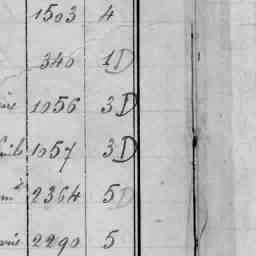 1503 4
340 1D
1056 3D
1057 3D
2364 5D
2290 5